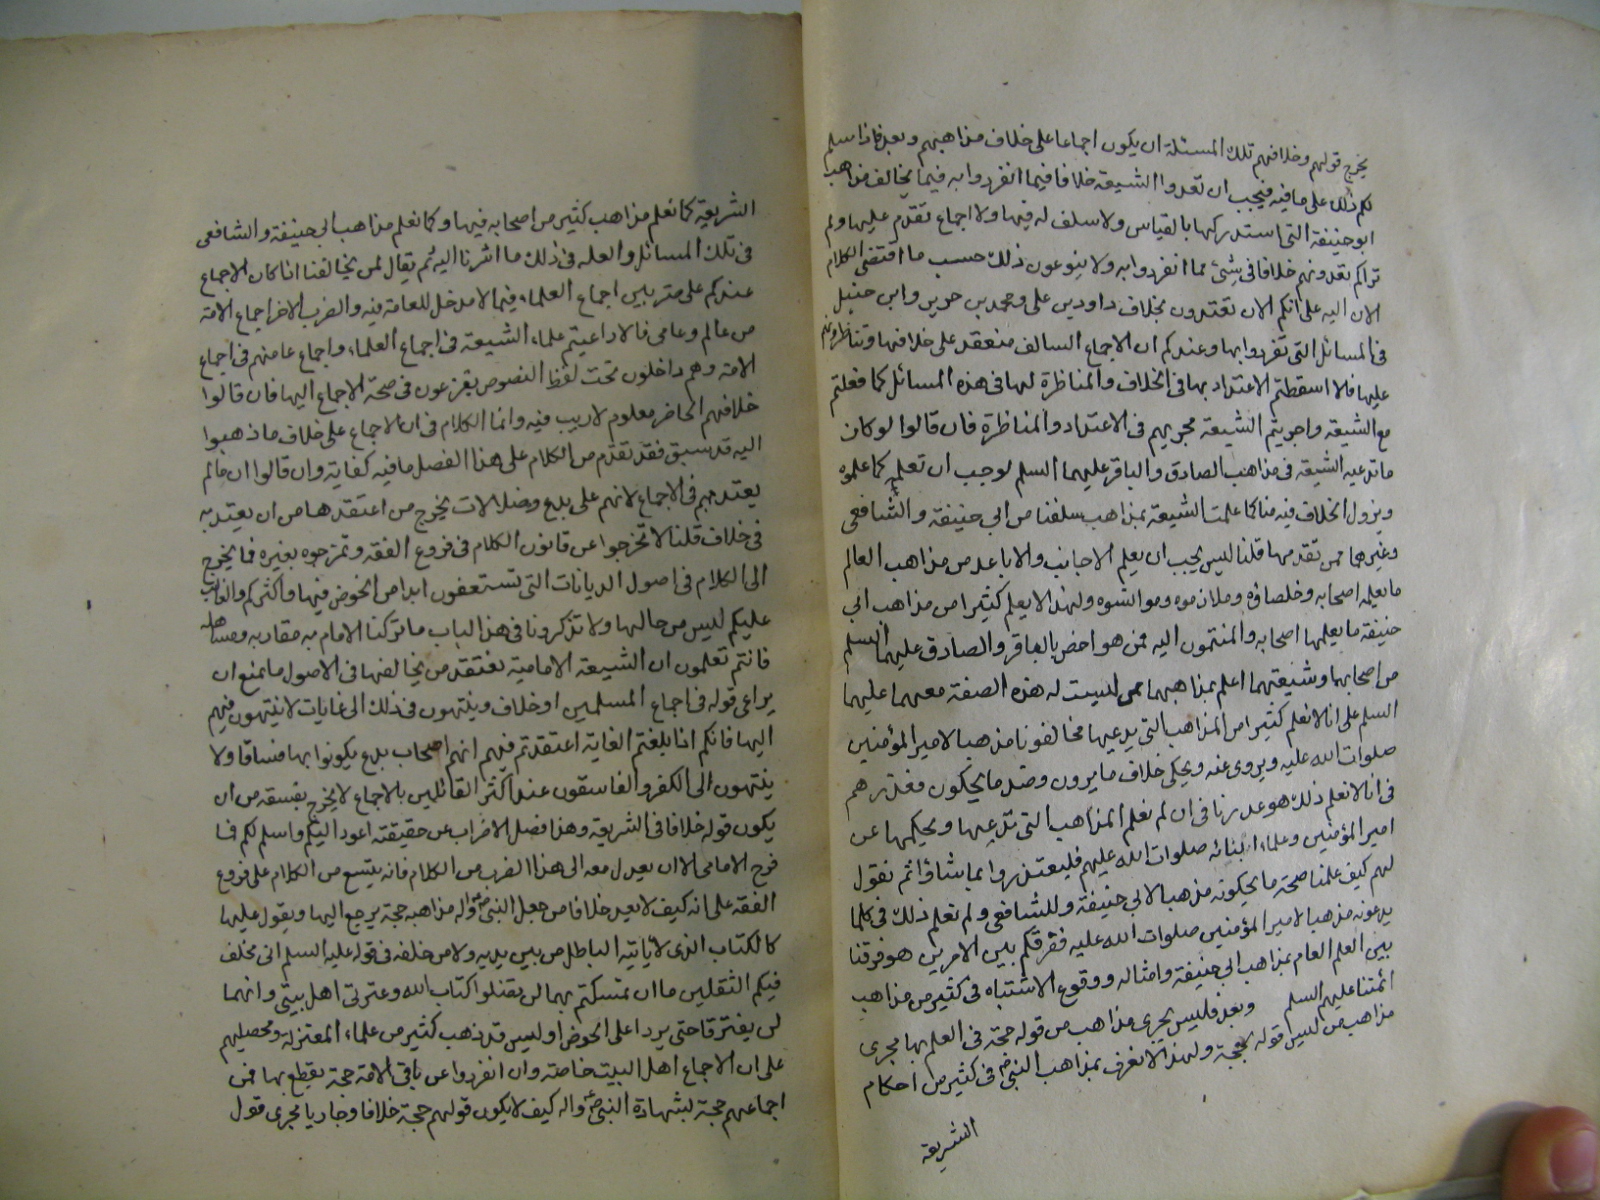 يخرج قولهم وخلافهم تلك المسئلة ان يكون اجماعا على خلاف مذاهبهم وبعد فاذا سلم
لكم ذلك على ما فيه فيجب ان تعدوا الشيعة خلافا فيما انفردوا به فيما يخالف مذاهب
ابو حنيفة التي استدركها بالقياس ولا سلف له فيها ولا اجماع تقدم عليها ولم
تراكم تعدونهم خلافا في شئ مما انفردوا به ولا ينوعون ذلك حسب ما اقتضى الكلام
الان اليه على انكم الان تعتدون بخلاف داود بن على ومحمد بن جرير وابن حنبل
في المسائل التي تفردوا بها وعندكم ان الاجماع السالف منعقد على خلافها وتناظرونهم
عليها فالا اسقطتم الاعتداد بها في الخلاف والمناظرة لها في هذه المسائل كما فعلتم
مع الشيعة واجريتم الشيعة مجريهم في الاعتداد والمناظرة فان قالوا لو كان
ما تدعيه الشيعة في مذاهب الصادق والباقر عليهما السلم لوجب ان نعلم كما علموه
ويزول الخلاف فيه منا كما علمت الشيعة بمذاهب سلفنا من ابي حنيفة والشافعى
وغيرهما ممن تقدمهما قلنا ليس يجب ان يعلم الاجانب والاباعد من مذاهب العالم
ما يعلمه اصحابه وخلصاؤه وملازموه وموانسوه ولهذا لا يعلم كثيرا من مذاهب ابي
حنيفة ما يعلمها اصحابه والمنتمون اليه ممن هو اخص بالباقر والصادق عليهما السلم
من اصحابهما وشيعتهما اعلم بمذاهبهما ممن ليست له هذه الصفة معهما عليهما
السلم على انا لا نعلم كثيرا من المذاهب التي يدعيها مخالفونا مذهبا لامير المؤمنين
صلوات الله عليه ويروى عنه ويحكى خلاف ما يرون وضد ما يحكون فعذرهم
في انا لا نعلم ذلك هو عذرنا في ان لم نعلم المذاهب التي ندعيها ونحكيها عن
امير المؤمنين وعلماء ابنائه صلوات الله عليهم فليعتذروا بما شاؤا ثم نقول
لهم كيف علمنا صحة ما يحكونه مذهبا لابي حنيفة وللشافعى ولم نعلم ذلك في كلما
يدعونه مذهبا لامير المؤمنين صلوات الله عليه ففرقكم بين الامرين هو فرقنا
بين العلم العام بمذاهب ابي حنيفة وامثاله ووقوع الاشتباه في كثير من مذاهب
ائمتنا عليهم السلم وبعد فليس يجرى مذاهب من قوله حجة في العلم بها مجرى
مذاهب من ليس قوله بحجة ولهذا لا نعرف بمذاهب النبي في كثير من احكام
الشريعة
الشريعة كما نعلم مذاهب كثير من اصحابه فيها وكما نعلم مذاهب ابي حنيفة والشافعى
في تلك المسائل والعلة في ذلك ما اشرنا اليه ثم يقال لمن يخالفنا اذا كان الاجماع
عندكم على ضربين اجماع العلماء فيما لا مدخل للعامة فيه والضرب الاخر اجماع الامة
من عالم وعامى فالا راعيتم علماء الشيعة في اجماع العلماء واجماع عامتهم في اجماع
الامة وهم داخلون تحت لفظ النصوص يفزعون في صحة الاجماع اليها فان قالوا
خلافهم الحاضر معلوم لا ريب فيه وانما الكلام في ان الاجماع على خلاف ما ذهبوا
اليه قد سبق فقد تقدم من الكلام على هذا الفصل ما فيه كفاية وان قالوا انما لم
يعتد بهم في الاجماع لانهم على بدع وضلالات يخرج من اعتقدها من ان يعتد به
في خلاف قلنا لا تخرجوا عن قانون الكلام في فروع الفقه وتمزجوه بغيره فما يخرج
الى الكلام في اصول الديانات التي تستعفون ابدا من الخوض فيها واكثركم والغالب
عليكم ليس من حالها ولا تذكرونا في هذا الباب ما تركنا الامام به مقاربة ومساهلة
فانتم تعلمون ان الشيعة الامامية تعتقد من يخالفها في الاصول ما يمنع ان
يراعى قوله في اجماع المسلمين او خلاف وينتهون في ذلك الى غايات لا ينتهون فيهم
اليها فانكم اذا بلغتم الغاية اعتقدتم فيهم انهم اصحاب بدع يكونوا بها فساقا ولا
ينتهون الى الكفر والفاسقون عند اكثر القائلين بالاجماع لا يخرج بفسقه من ان
يكون قوله خلافا في الشريعة وهذا فصل الاضراب عن حقيقته اعود اليكم واسلم لكم فما
فرح الامامى الا ان يعدل معه الى هذا الضرب من الكلام فانه يتسع من الكلام على فروع
الفقه على انه كيف لا يعد خلافا من جعل النبي واله مذاهبه حجة يرجع اليها ويقول عليها
كالكتاب الذي لا ياتيه الباطل من بين يديه ولا من خلفه في قوله عليه السلم انى مخلف
فيكم الثقلين ما ان تمسكتم بهما لن تضلوا كتاب الله وعترتى اهل بيتى وانهما
لن يفترقا حتى يردا على الحوض اوليس قد ذهب كثير من علماء المعتزلة ومحصليهم
على ان الاجماع اهل البيت خاصة وان انفردوا عن باقى الامة حجة يقطع بها فمن
اجماعهم حجة بشهادة النبي واله كيف لا يكون قولهم حجة خلافا وجاريا مجرى قول